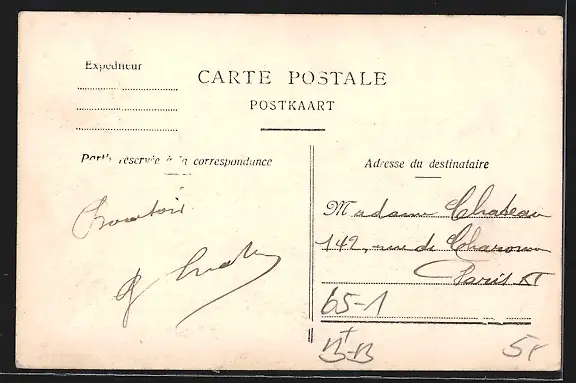 Expéditeur
CARTE POSTALE
POSTKAART
Partie réservée à la correspondance
Adresse du destinataire
Madame Chateau
142, rue de Charonne
Paris XI
65-1
B+B
5r